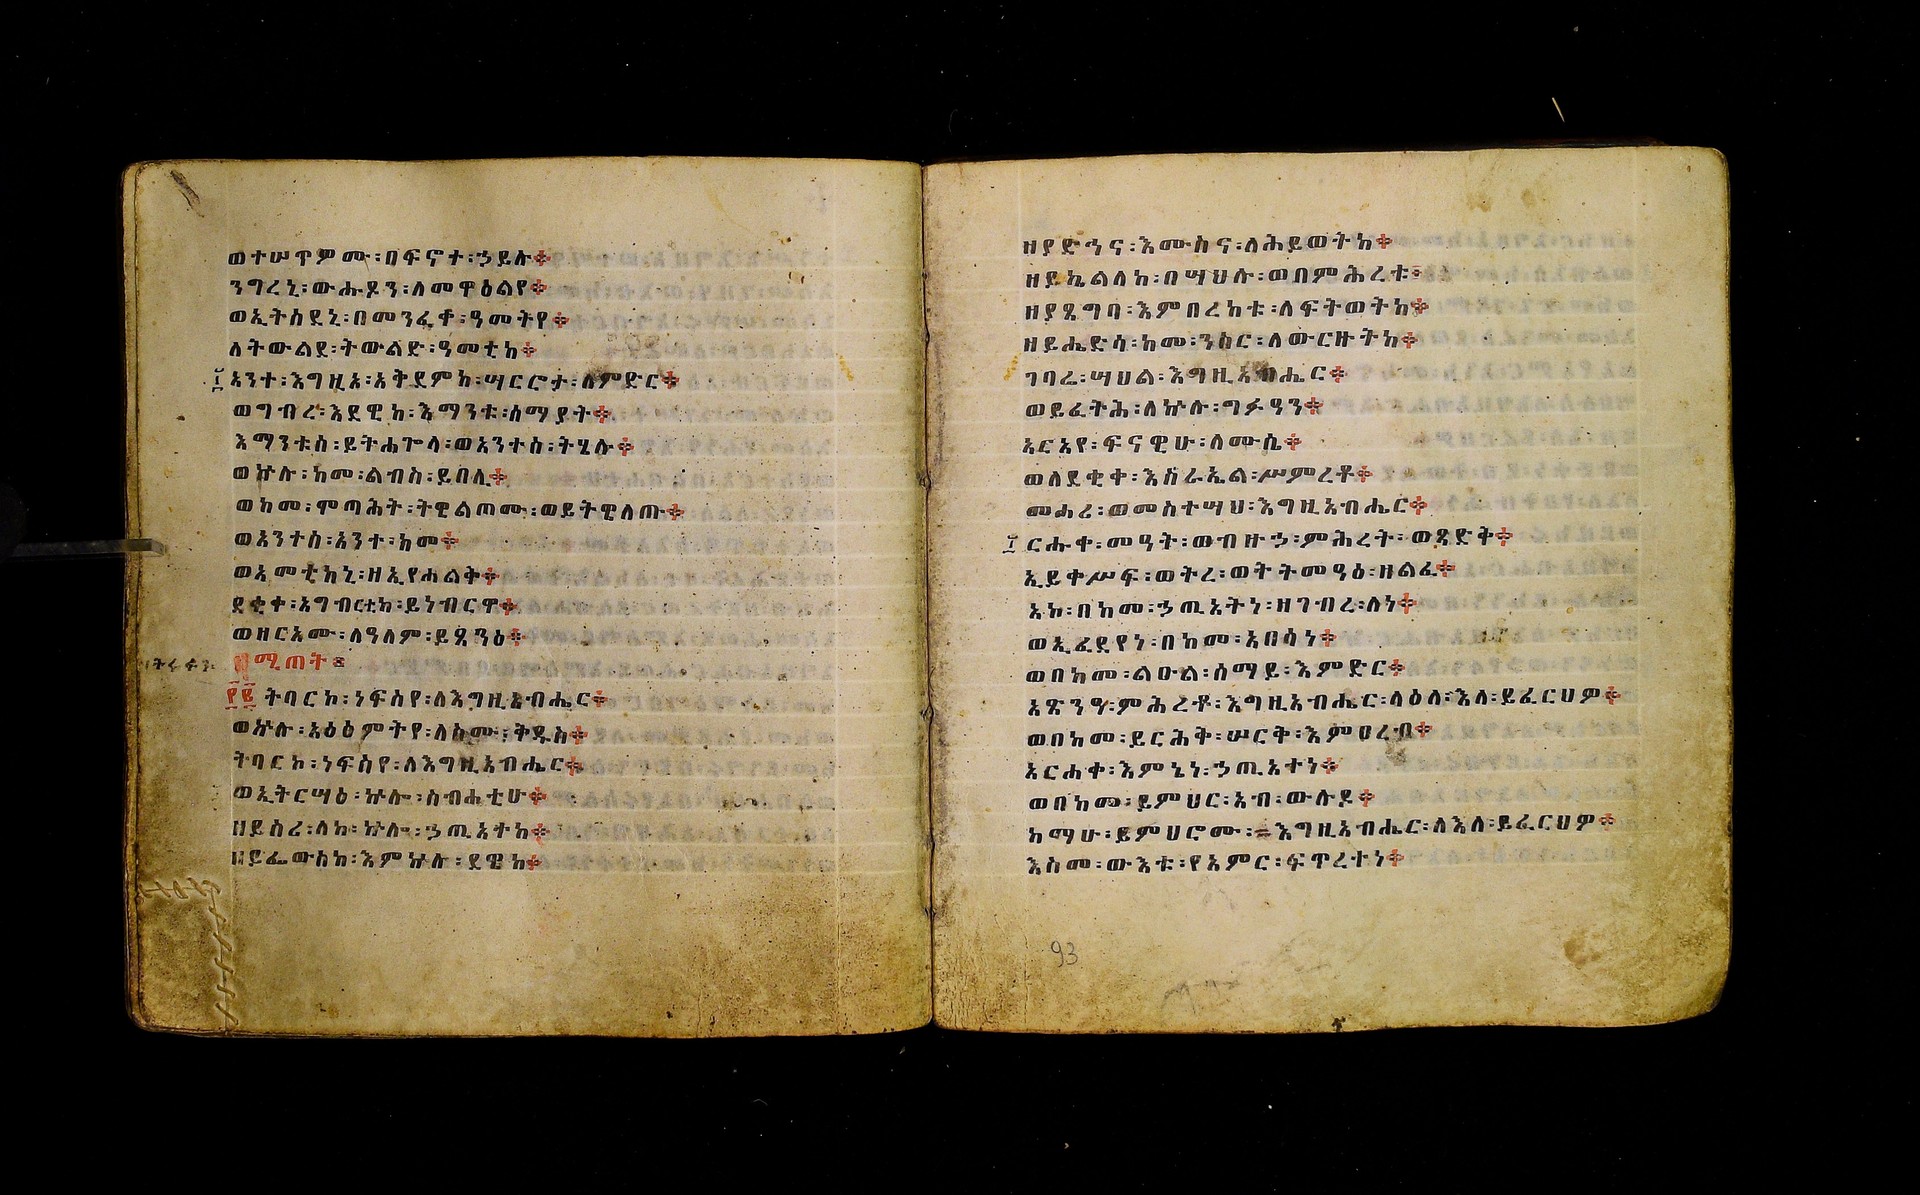 ወተሠጥምሙ፡በፍኖተ፡ኃይሉ፨
ንግረኒ፡ውሑዶን፡ለመዋዕልየ፨
ወኢትስደኒ፡በመንፈቀ፡ዓመትየ፨
ለትውልደ፡ትውልድ፡ዓመቲከ፨
አንተ፡እግዚአ፡አቅደምከ፡ሣርሮታ፡ለምድር፨
ወግብረ፡እደዊከ፡እማንቱ፡ሰማያት፨
እማንቱስ፡ይትሐጐላ፡ወአንተስ፡ትሄሉ፨
ወኵሉ፡ከመ፡ልብስ፡ይበሊ፨
ወከመ፡ሞጣሕት፡ትዌልጦሙ፡ወይትዌለጡ፨
ወአንተስ፡አንተ፡ከመ፨
ወአመቲከኒ፡ዘኢየሐልቅ፨
ደቂቀ፡አግብርቲከ፡ይነብርዋ፨
ወዘርአሙ፡ለዓለም፡ይጸንዕ፨
ትባርኮ፡ነፍስየ፡ለእግዚአብሔር፨
ወኵሉ፡አዕፅምትየ፡ለስሙ፡ቅዱስ፨
ትባርኮ፡ነፍስየ፡ለእግዚአብሔር፨
ወኢትርሣዕ፡ኵሎ፡ስብሐቲሁ፨
ዘይሰሪ፡ለከ፡ኵሎ፡ኃጢአተከ፨
ዘይፌውሰከ፡እምኵሉ፡ደዌከ፨
ዘያድኅና፡እሙስና፡ለሕይወትከ፨
ዘይኬልለከ፡በሣህሉ፡ወበምሕረቱ፨
ዘያጸግባ፡እምበረከቱ፡ለፍትወትከ፨
ዘይሔድሳ፡ከመ፡ንስር፡ለውርዙትከ፨
ገባሬ፡ሣህል፡እግዚአብሔር፨
ወይፈትሕ፡ለኵሉ፡ግፉዓን፨
አርአየ፡ፍናዊሁ፡ለሙሴ፨
ወለደቂቀ፡እስራኤል፡ሥምረቶ፨
መሐሪ፡ወመስተሣህ፡እግዚአብሔር፨
፲ ርሑቀ፡መዓት፡ወብዙኃ፡ምሕረት፡ወጻድቅ፨
ኢይቀሥፍ፡ወትረ፡ወትትመዓዕ፡ዘልፈ፨
አኮ፡በከመ፡ኃጢአትነ፡ዘገብረ፡ለነ፨
ወኢፈደየነ፡በከመ፡አበሳነ፨
ወበከመ፡ልዑል፡ሰማይ፡እምድር፨
አጽንዓ፡ምሕረቶ፡እግዚአብሔር፡ላዕለ፡እለ፡ይፈርህዎ፨
ወበከመ፡ይርሕቅ፡ሠርቅ፡እምዐረብ፨
አርሐቀ፡እምኔነ፡ኃጢአተነ፨
ወበከመ፡ይምህር፡አብ፡ውሉዶ፨
ከማሁ፡ይምህሮሙ፡እግዚአብሔር፡ለእለ፡ይፈርህዎ፨
እስመ፡ውእቱ፡የአምር፡ፍጥረተነ፨
93